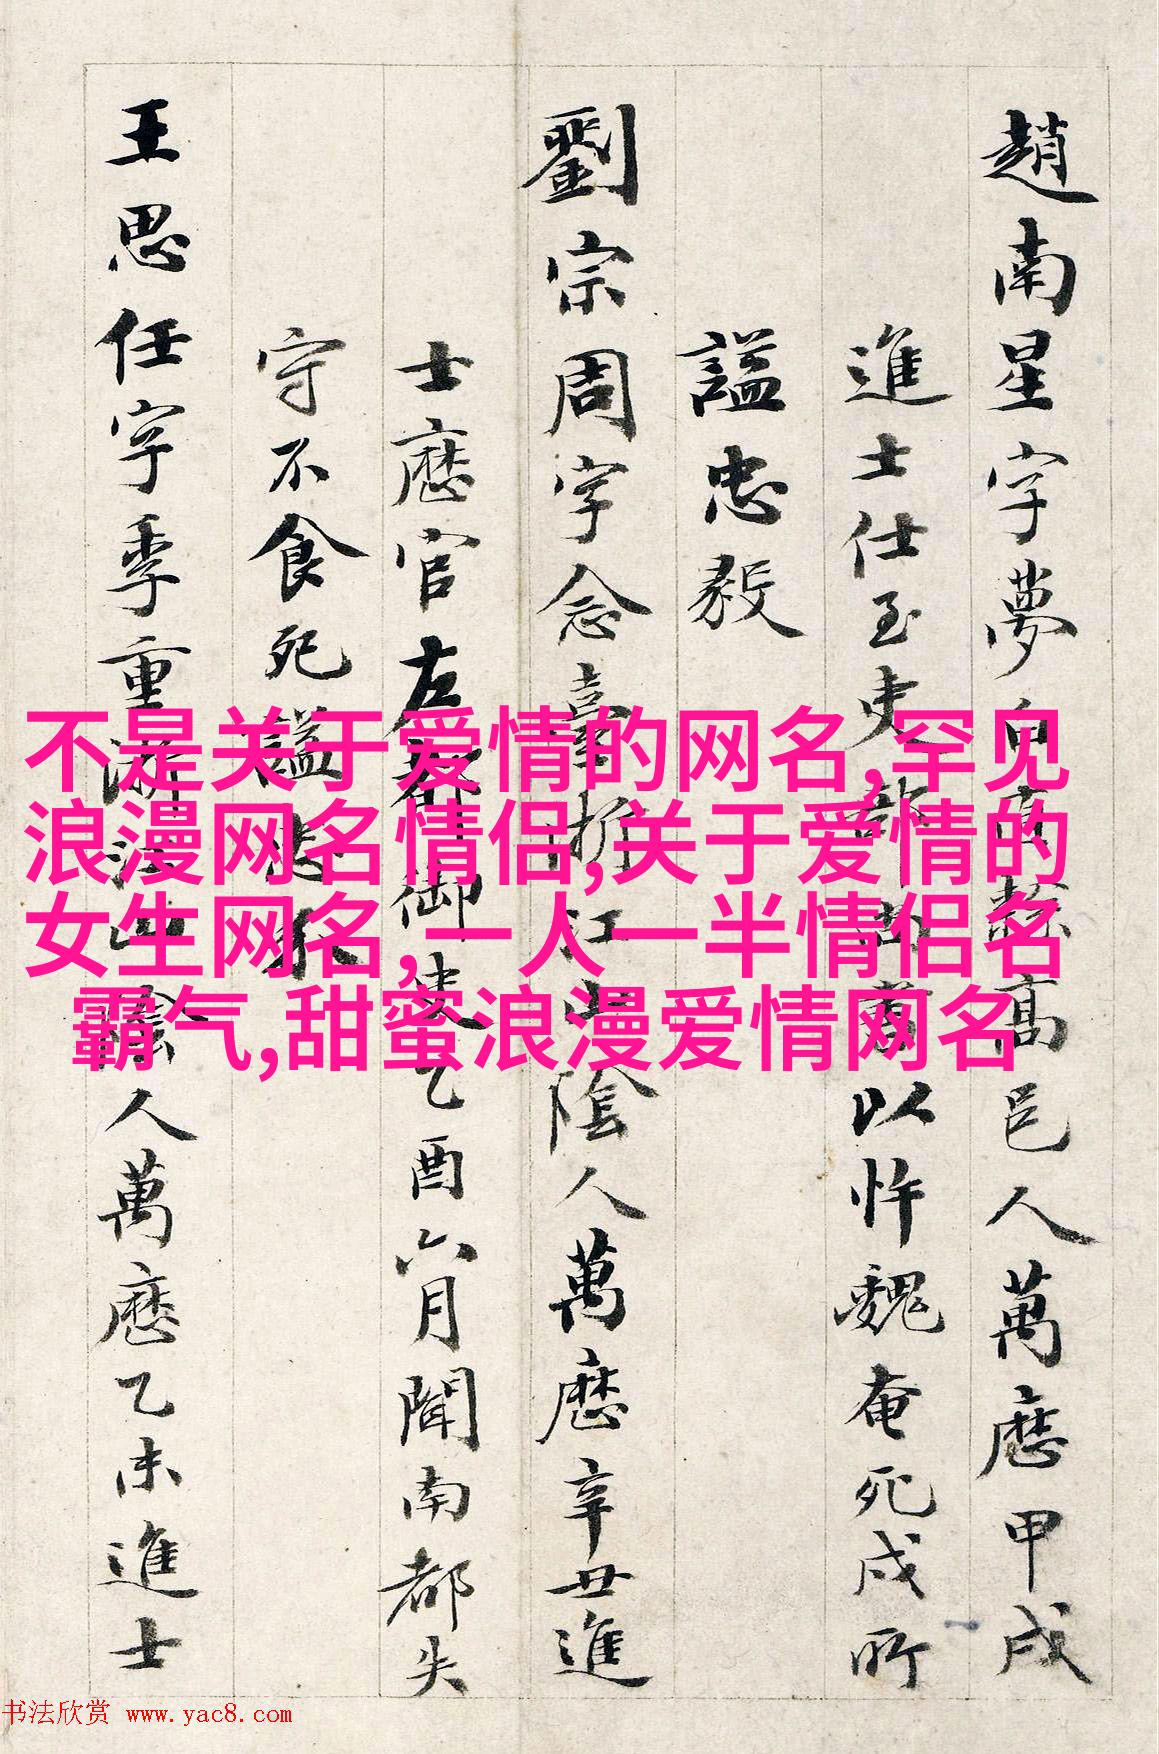 趙南星字夢白直隸高邑人萬厯甲戌
進士仕至吏部尚書以忤魏奄死戍所
諡忠毅
劉宗周字念臺浙江山陰人萬厯辛丑進
士厯官左都御史乙酉六月聞南都失
守不食死諡忠
王思任字季重浙江山陰人萬厯乙未進士
不是关于爱情的网名,罕见
浪漫网名情侣,关于爱情的
女生网名,一人一半情侣名
霸气,甜蜜浪漫爱情网名
书法欣赏 www.yac8.com